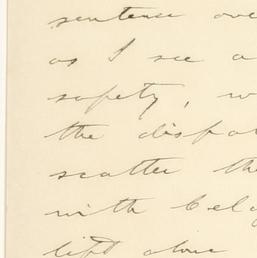 sentence over
as I see a
safety, w
the dispo
scatter the
with Belg
left alone